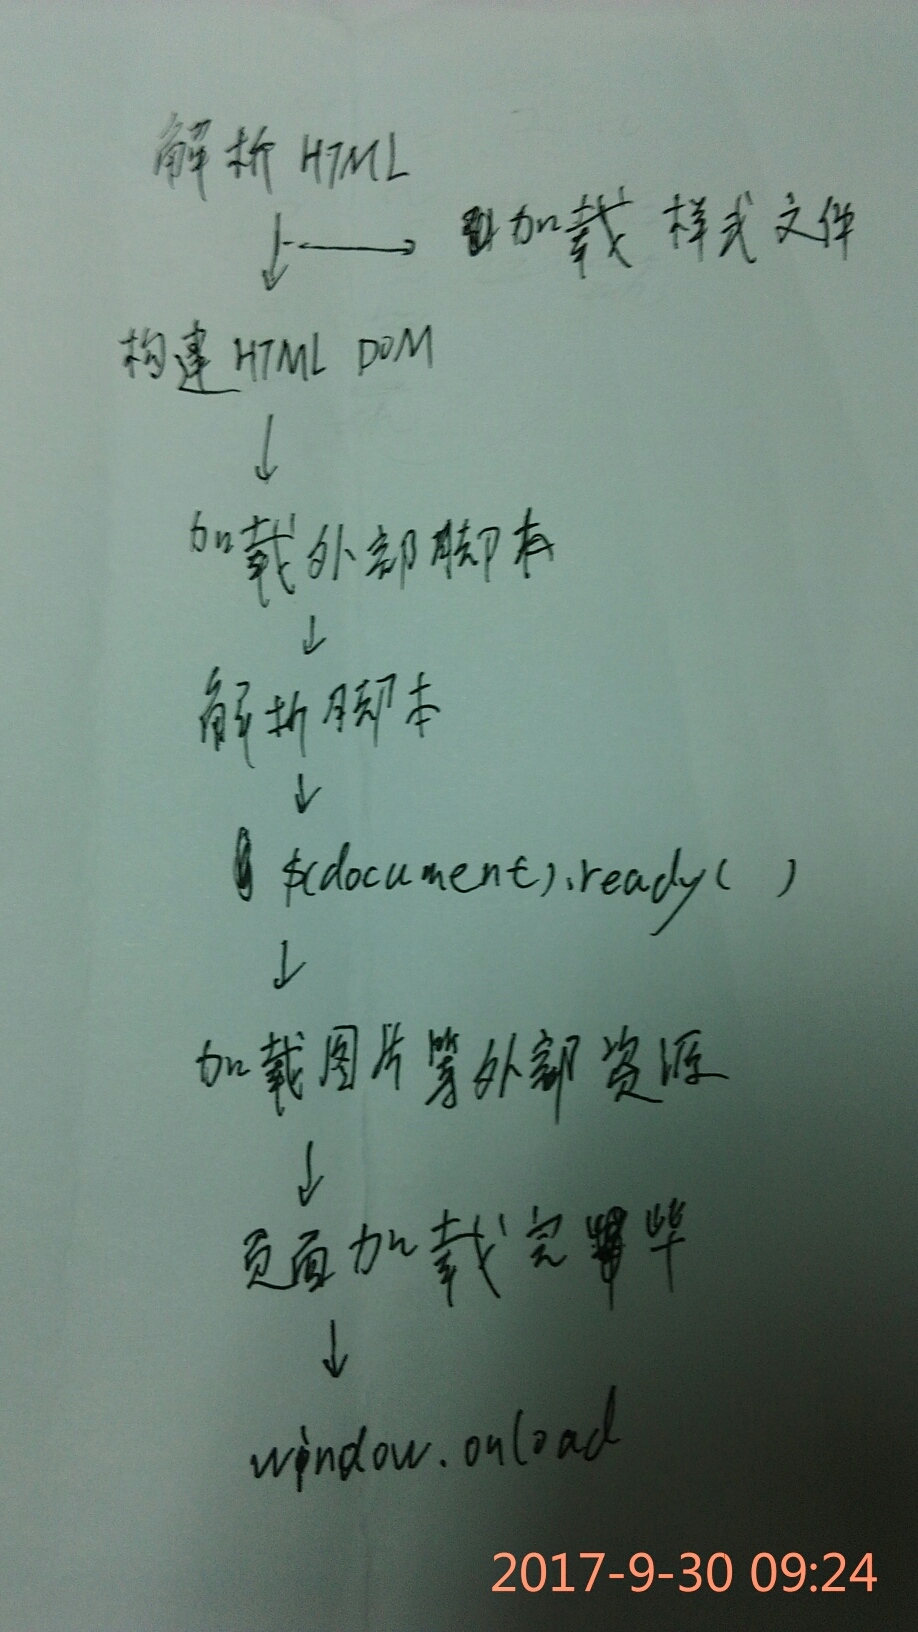 解析 HTML
加载 样式文件
构建 HTML DOM
加载外部脚本
解析脚本
$(document).ready( )
加载图片等外部资源
页面加载完毕
window.onload
2017-9-30 09:24